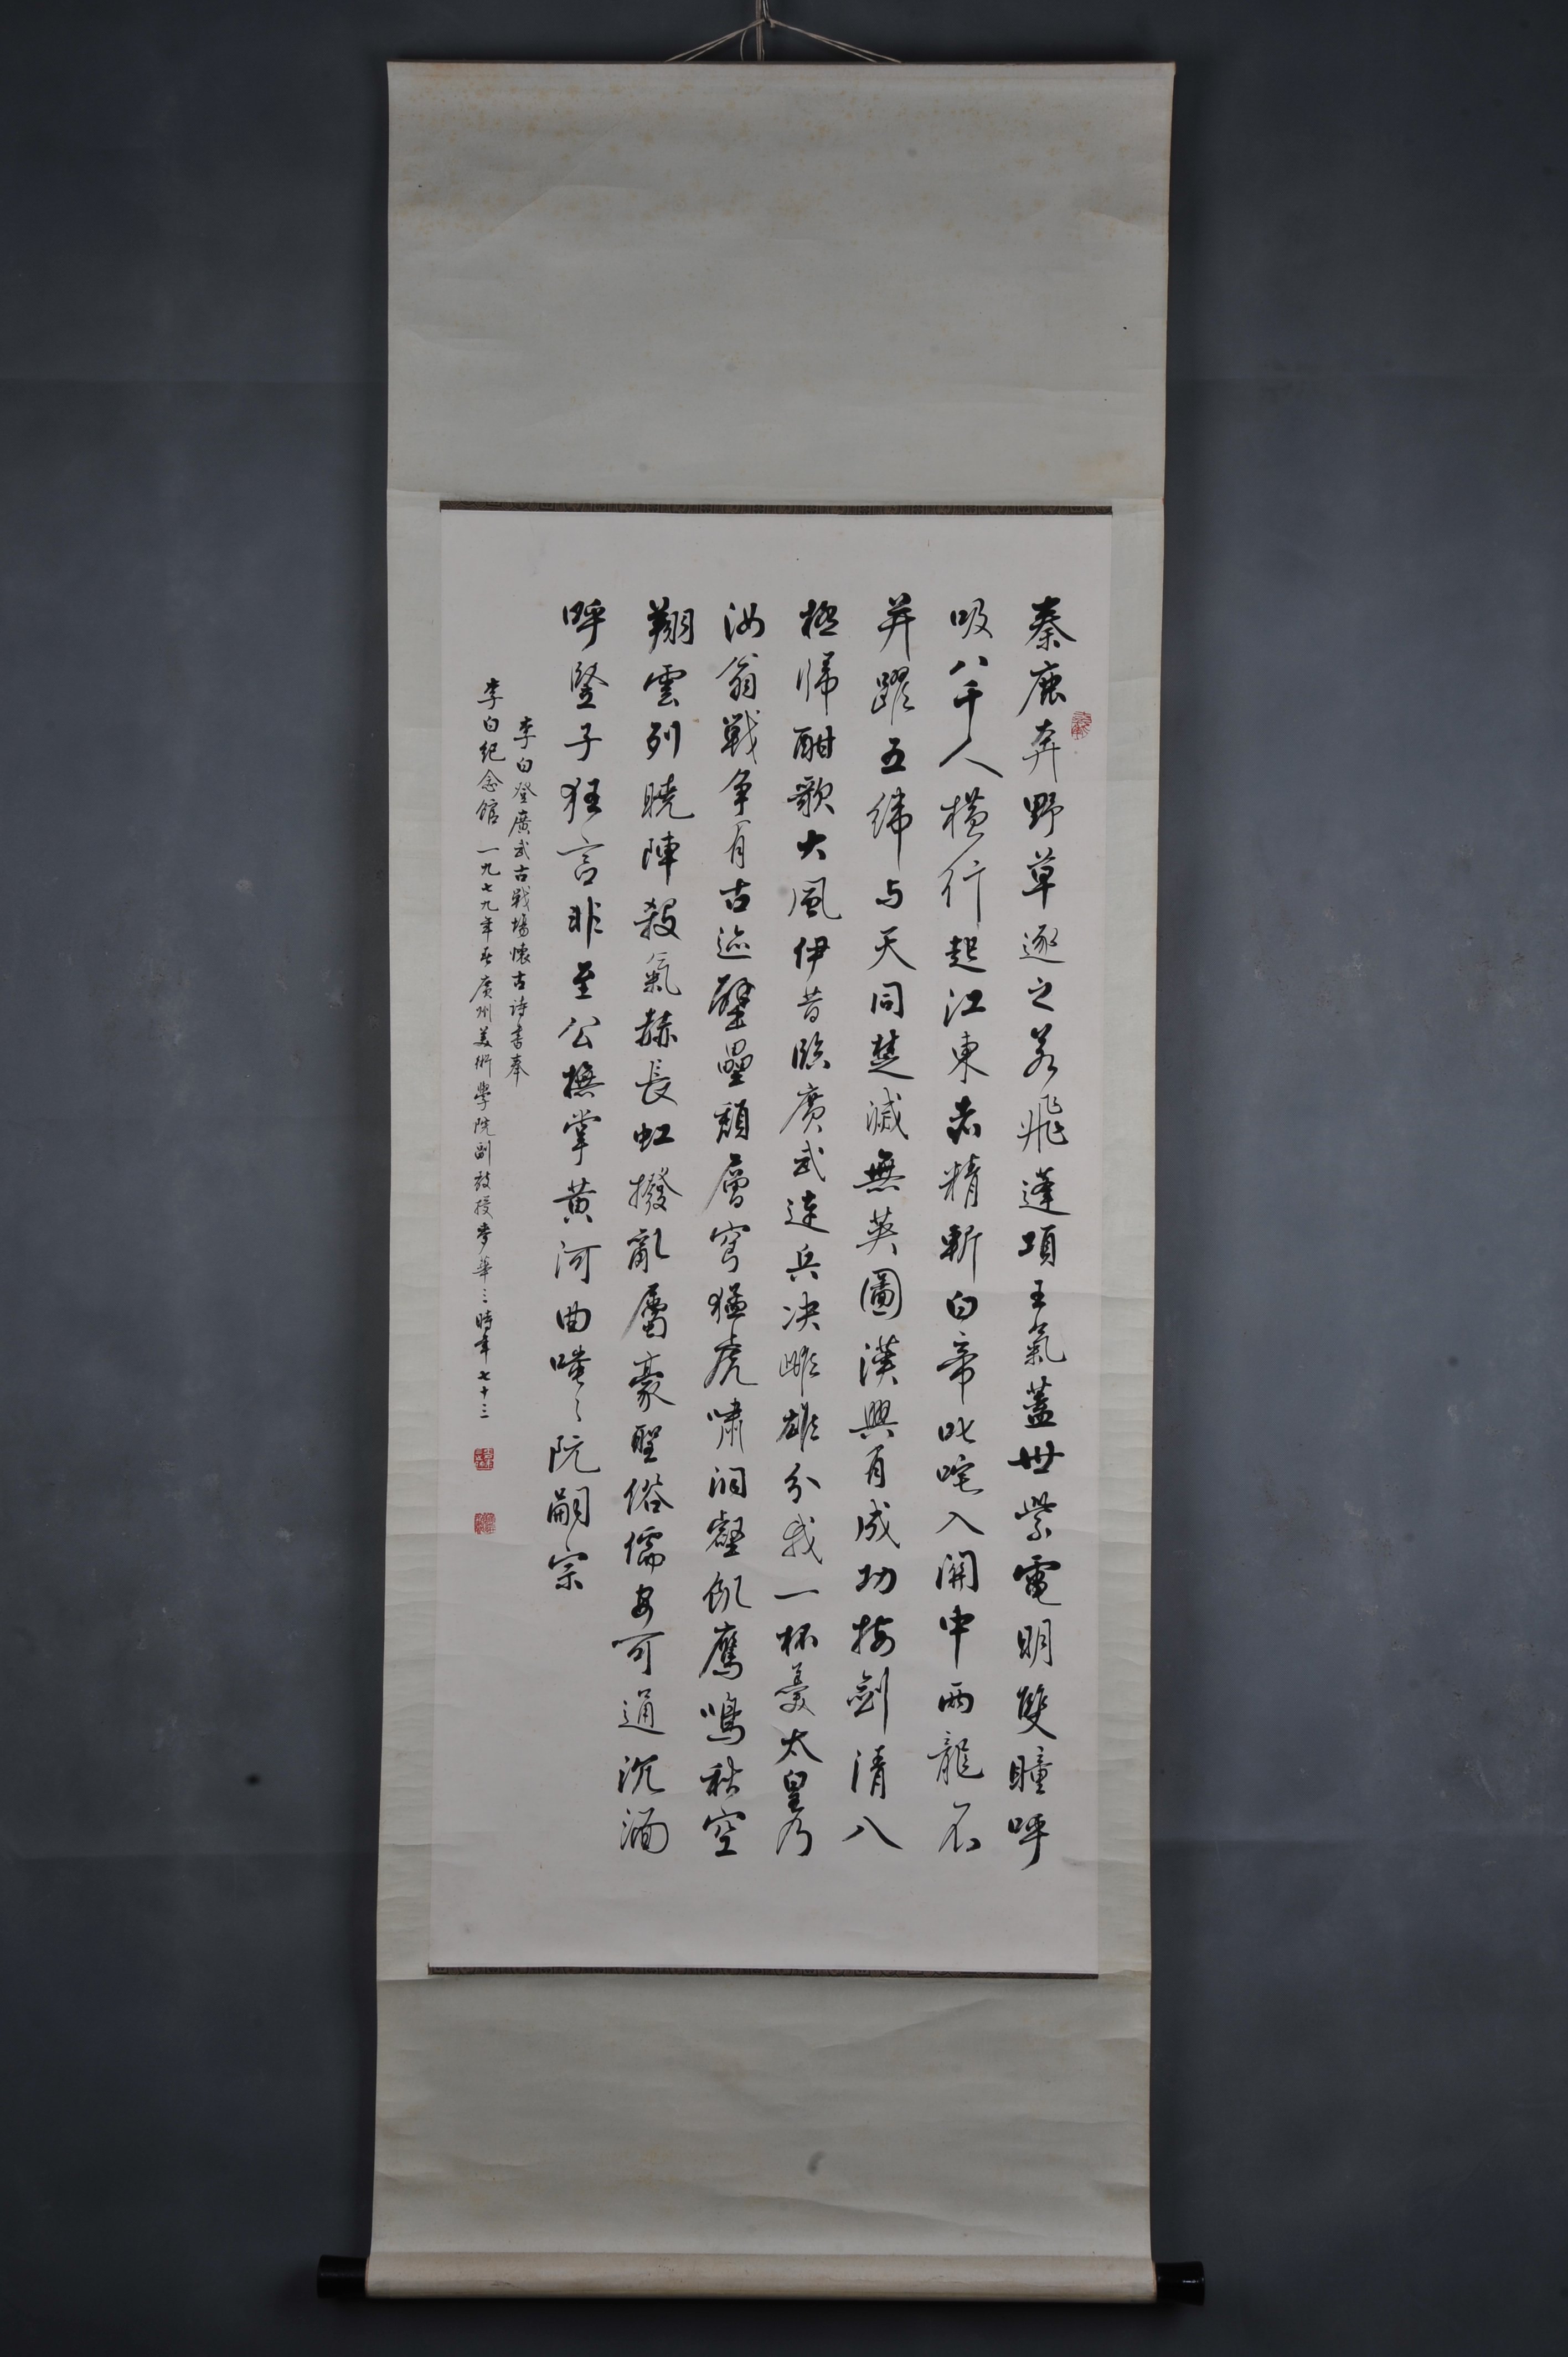 秦鹿奔野草逐之若飛蓬項王氣蓋世紫電明雙瞳呼
吸八千人橫行起江東赤精斬白帝叱咤入關中兩龍不
并躍五緯与天同楚滅無英圖漢興有成功按劍清八
極歸酣歌大風伊昔臨廣武連兵決雌雄分我一杯羹太皇乃
汝翁戰爭有古迹壁壘頹層穹猛虎嘯洞壑飢鷹鳴秋空
翔雲列曉陣殺氣赫長虹撥亂屬豪聖俗儒安可通沉湎
呼豎子狂言非至公撫掌黃河曲嗤〻阮嗣宗
李白登廣武古戰場懷古诗書奉
李白紀念館 一九七九年春廣州美術學院副教授麥華三時年七十三